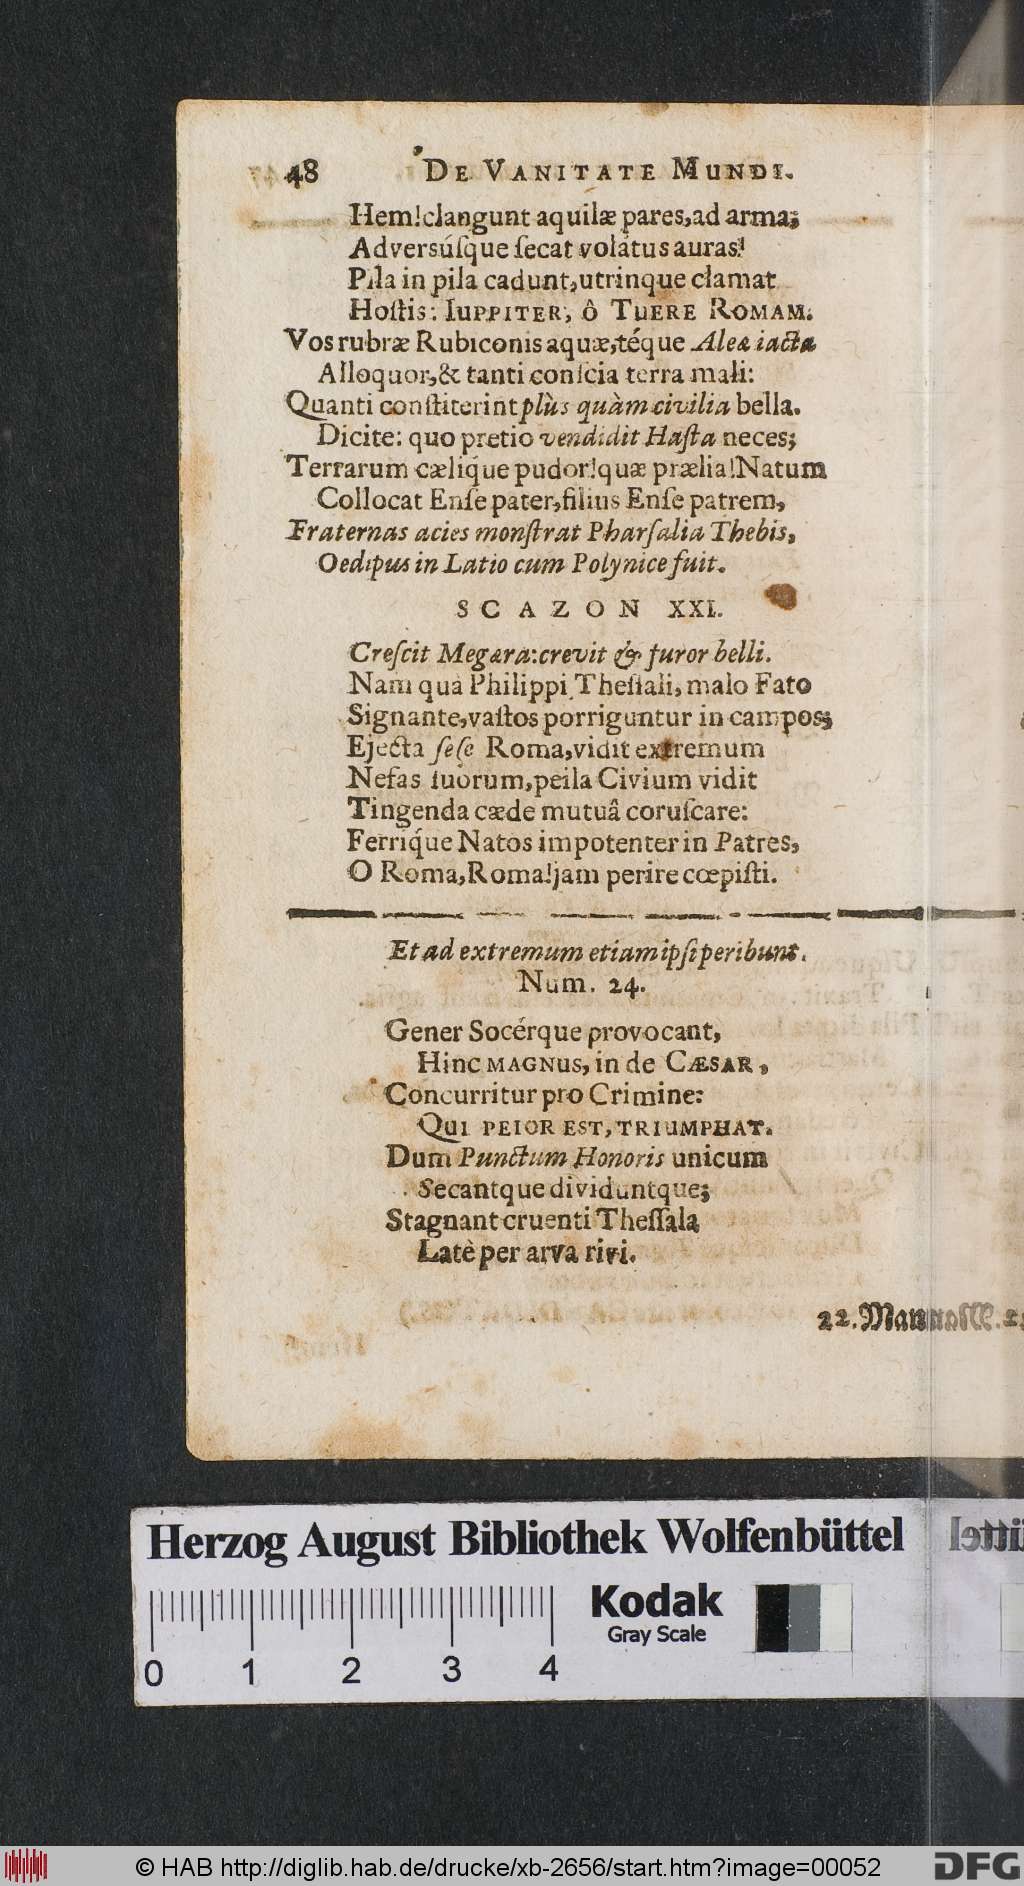 48 DE VANITATE MUNDI.
Hem! clangunt aquilæ pares, ad arma;
Adversúſque ſecat volátus auras!
Pila in pila cadunt, utrinque clamat
Hoſtis: IUPPITER, ô TUERE ROMAM.
Vos rubræ Rubiconis aquæ, téque Alea iacta
Alloquor, & tanti conſcia terra mali:
Quanti conſtiterint plùs quàm civilia bella.
Dicite: quo pretio vendidit Haſta neces;
Terrarum cæliq́ue pudor! quæ prælia! Natum
Collocat Enſe pater, filius Enſe patrem,
Fraternas acies monſtrat Pharſalia Thebis,
Oedipus in Latio cum Polynice fuit.
SCAZON XXI.
Creſcit Megæra: crevit & furor belli.
Nam quà Philippi Theſſali, malo Fato
Signante, vaſtos porriguntur in campos;
Ejecta ſeſe Roma, vidit extremum
Nefas ſuorum, peila Civium vidit
Tingenda cæde mutuâ coruſcare:
Ferriq́ue Natos impotenter in Patres,
O Roma, Roma! jam perire cœpiſti.
Et ad extremum etiam ipſi peribunt.
Num. 24.
Gener Socérque provocant,
Hinc MAGNUS, inde CÆSAR,
Concurritur pro Crimine:
QUI PEIOR EST, TRIUMPHAT.
Dum Punctum Honoris unicum
Secantque dividuntque;
Stagnant cruenti Theſſala
Latè per arva rivi.
22. Mannam
Herzog August Bibliothek Wolfenbüttel
Kodak
Gray Scale
0 1 2 3 4
© HAB http://diglib.hab.de/drucke/xb-2656/start.htm?image=00052
DFG